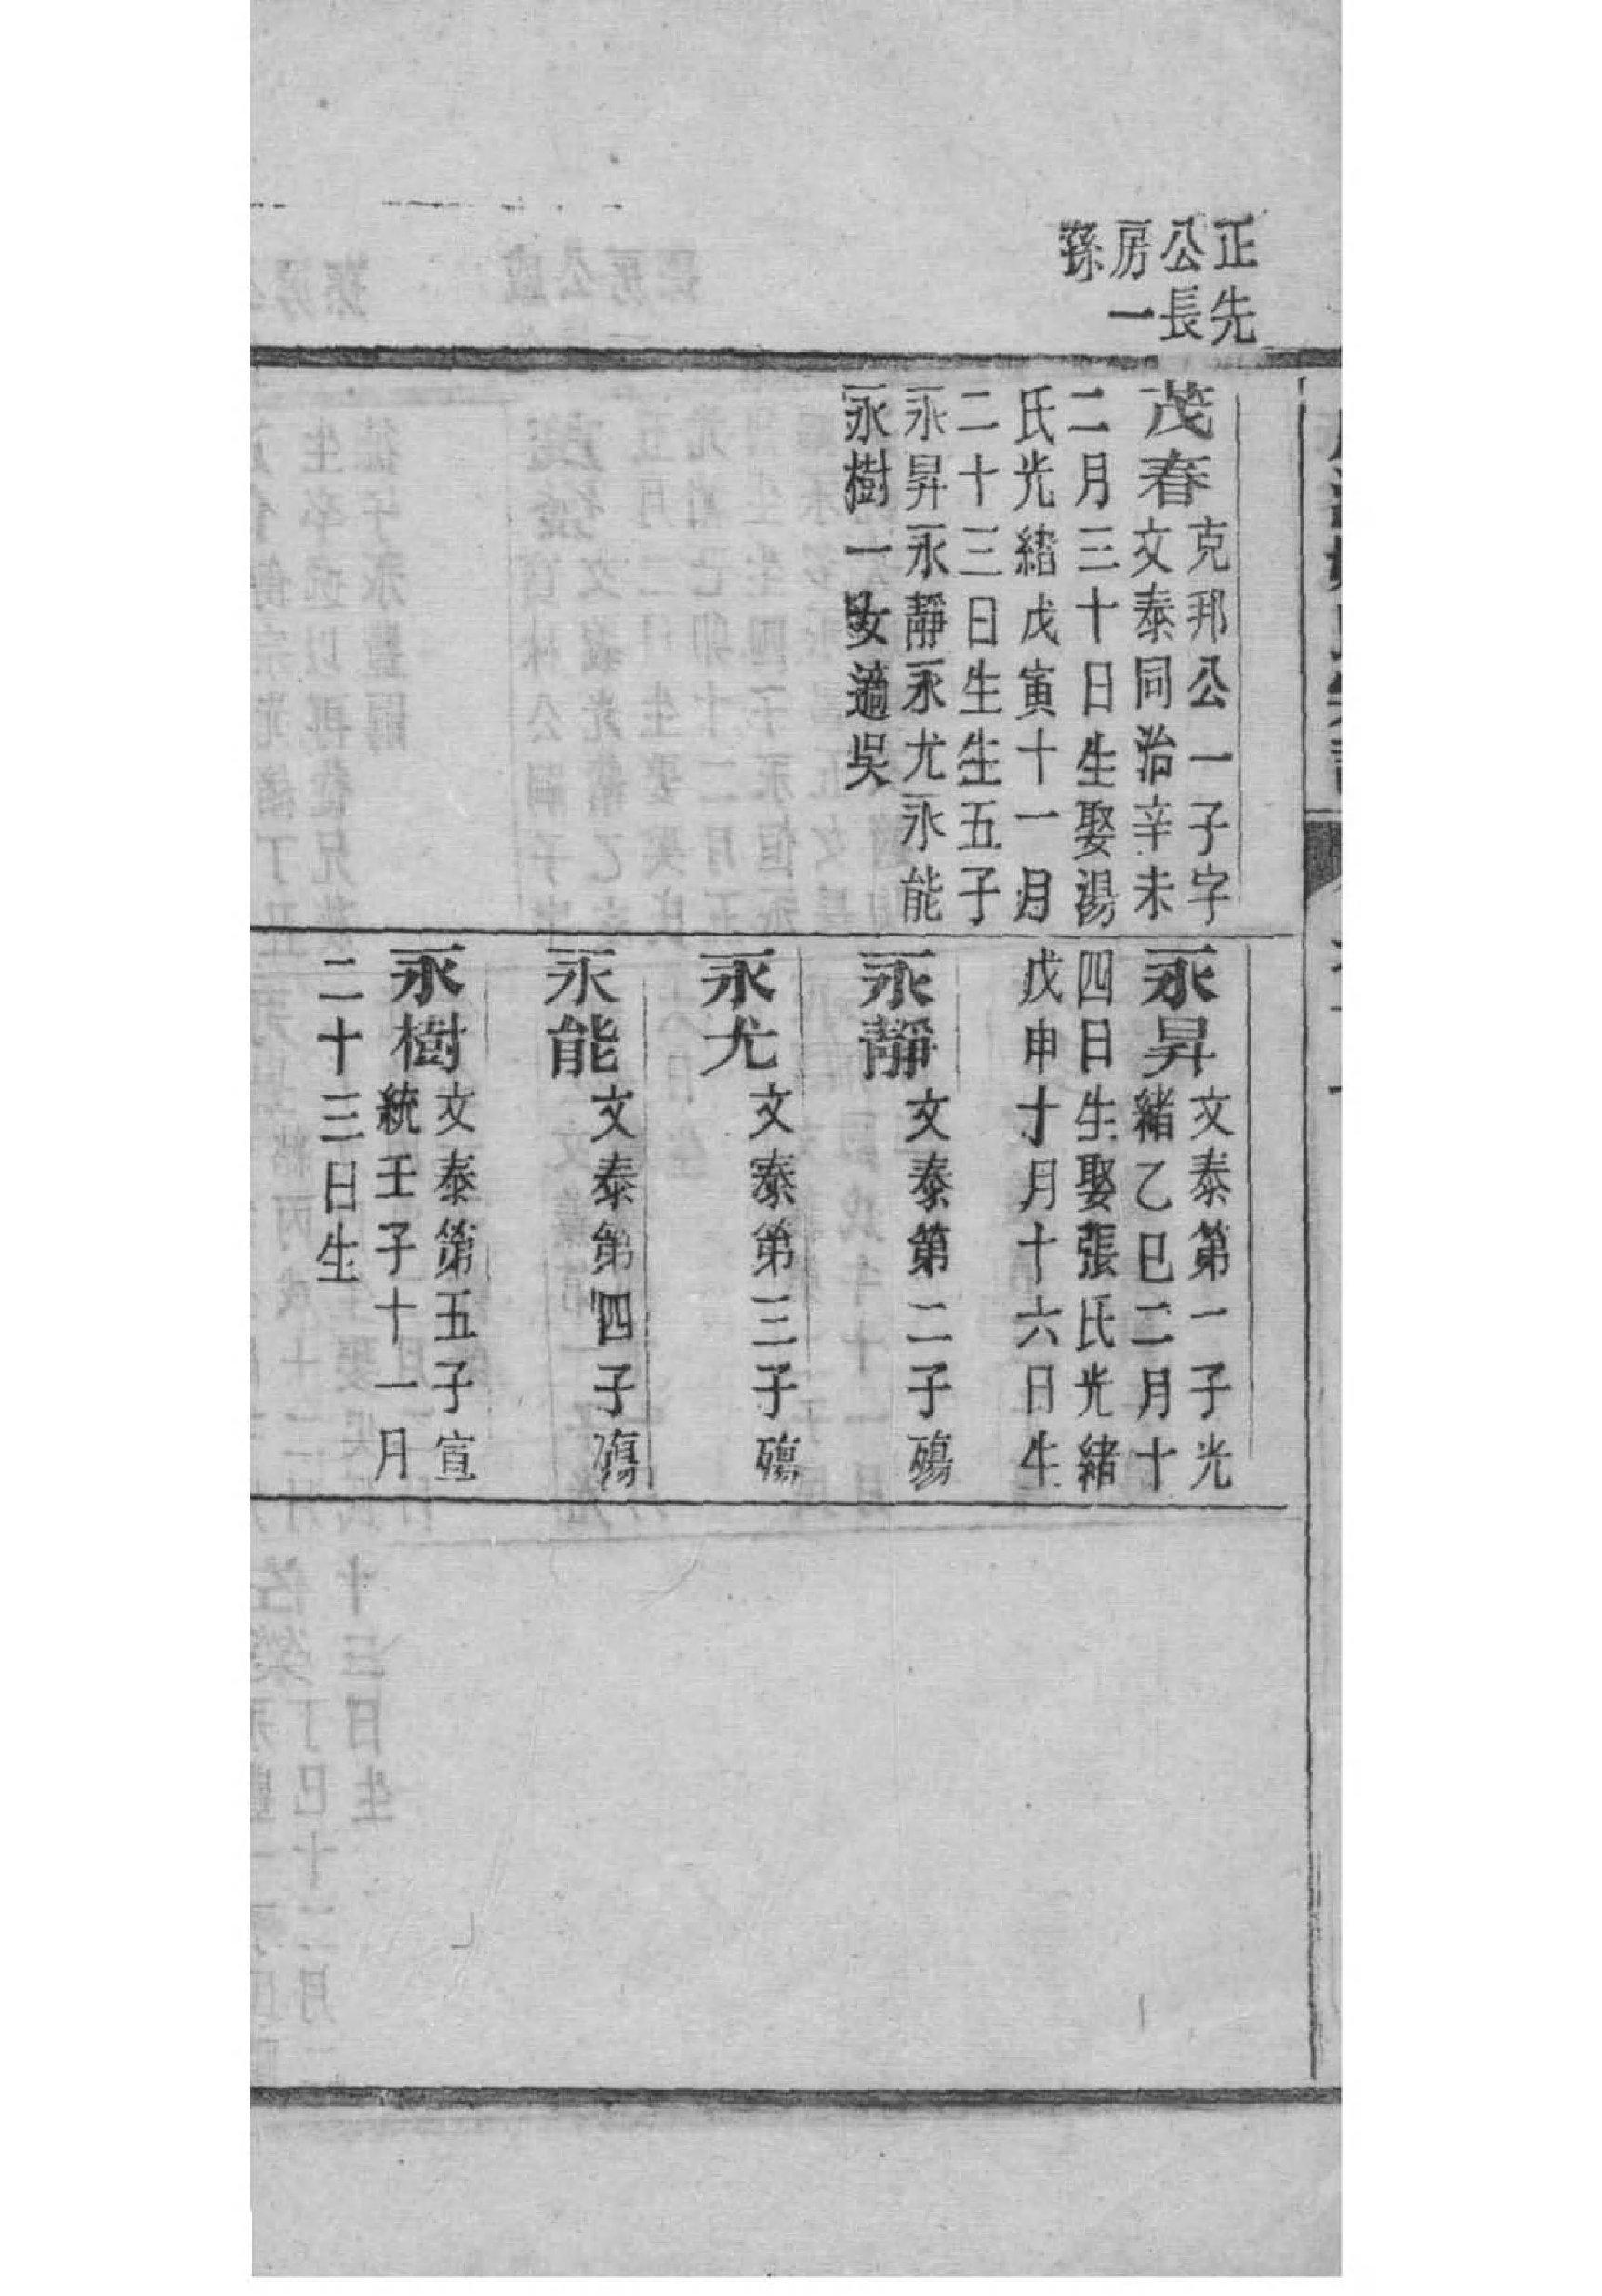 正先
公長
房一
孫
茂春克邦公一子字
文泰同治辛未
二月三十日生娶湯
氏光緒戊寅十一月
二十三日生生五子
永昇永靜永尤永能
永樹一女適吳
永昇文泰第一子光
緒乙巳二月十
四日生娶張氏光緒
戊申十月十六日生
永靜文泰第二子殤
永尤文泰第三子殤
永能文泰第四子殤
永樹文泰第五子宣
統壬子十一月
二十三日生